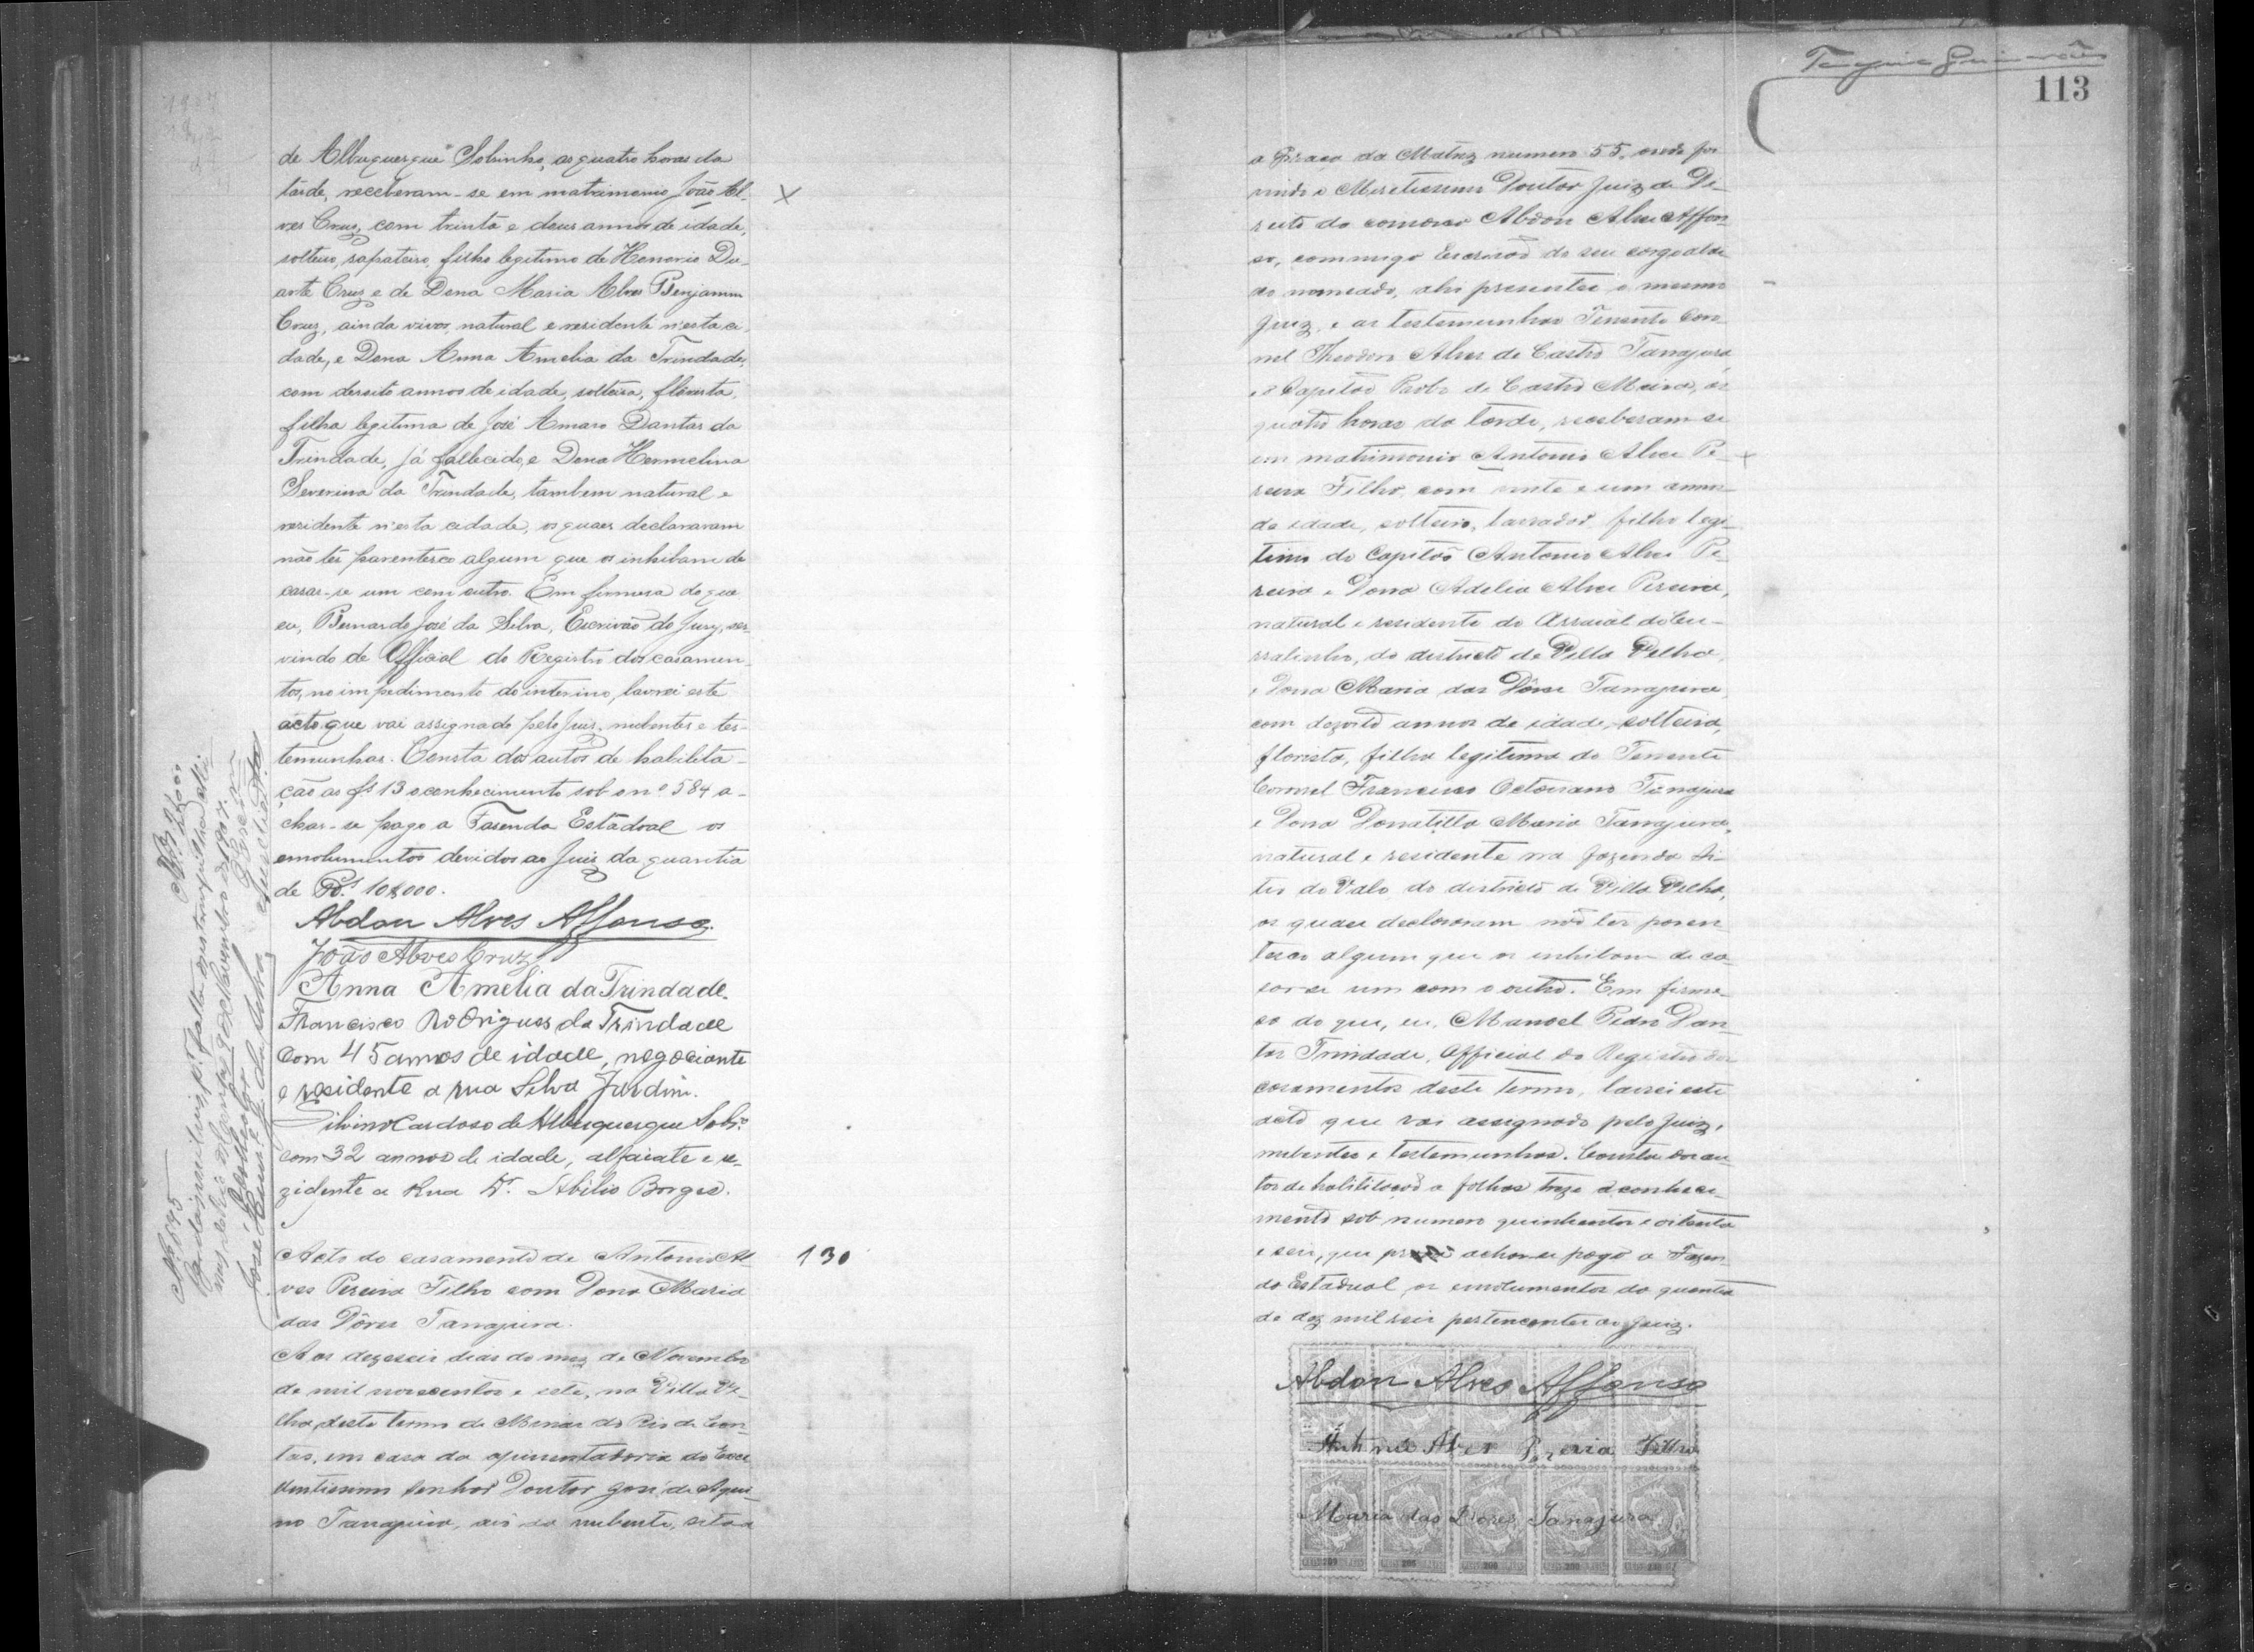 de Albuquerque Sobrinho, as quatro horas da
tarde, receberam-se em matrimonio João Al-
ves Cruz, com trinta e dous annos de idade,
solteiro, sapateiro, filho legitimo de Honorio Du-
arte Cruz e de Dona Maria Alves Benjamin
Cruz, ainda vivos, natural e residente n'esta ci-
dade, e Dona Anna Amelia da Trindade,
com desoito annos de idade, solteira, florista,
filha legitima de José Amaro Dantas da
Trindade, já fallecido, e Dona Hermelina
Severina da Trindade, tambem natural e
residente n'esta cidade, os quaes declararam
não ter parentesco algum que os inhibam de
casar-se um com outro. Em firmesa do que
eu, Bernardo José da Silva, Escrivão do Jury, ser-
vindo de Official do Registro dos casamen-
tos, no impedimento do interino, lavrei este
acto que vai assignado pelo Juiz, nubentes e tes-
temunhas. Consta dos autos de habilita-
ção as fs 13 o conhecimento sob o nº 584 a-
char-se pago a Fasenda Estadoal os
emolumentos devidos ao Juiz da quantia
de Rs. 10$000.
Abdon Alves Affonso.
João Alves Cruz
Anna Amelia da Trindade.
Francisco Rodrigues da Trindade
Com 45 annos de idade, negociante
e residente a rua Silva Jardim.
Silvino Cardoso de Albuquerque Sobr.º
com 32 annos de idade, alfaiate e re-
zidente a Rua Dr. Abilio Borges.
Acto do casamento de Antonio Al 130
ves Pereira Filho com Dona Maria
das Dôres Tanajura.
Aos dezeseis dias do mez de Novembro
de mil novecentos e sete, na Villa Ve-
lha, deste termo de Minas do Rio de Con-
tas, em casa da aposentadoria do Exce
llentissimo Senhor Doutor José de Aqui-
no Tanajura, da nubente, sita a
Nº 595
José da
113
a Praça da Matriz numero 55, onde foi
vindo o Meretissimo Doutor Juiz de Di-
reito da comarca Abdon Alves Affon-
so, commigo Escrivão de seu cargo
do nomeado, ahi presentes o mesmo
Juiz, e as testemunhas Tenente Coro
nel Theodoro Alves de Castro Tanajura
e o Capitão de Castro Meira, ás
quatro horas da tarde, receberam-se
em matrimonio Antonio Alves Pe-
reira Filho, com vinte e um annos
de idade, solteiro, lavrador, filho legi-
timo do Capitão Antonio Alves Pe-
reira e Dona Adelia Alves Pereira,
natural e residente do Arraial do Cur-
ralinho, do districto de Villa Velha,
e Dona Maria das Dôres Tanajura
com dezoito annos de idade, solteira,
florista, filha legitima do Tenente
Coronel Francisco Octaviano Tanajura
e Dona Donatilla Maria Tanajura,
natural e residente na fazenda Si-
tio do Valo do districto de Villa Velha,
os quaes declararam não ter paren-
tesco algum que os inhibam de ca-
sar-se um com o outro. Em firme-
sa do que, eu, Manoel Pedro Dan-
tas Trindade, Official do Registro dos
casamentos deste termo, lavrei este
acto que vai assignado pelo Juiz,
nubentes e testemunhas. Consta dos au-
tos de habilitação a folhas treze o conheci-
mento sob numero quinhentos e oitenta
e seis, que achar-se pago a Fazen-
da Estadoal os emolumentos da quantia
de dez mil reis pertencentes ao Juiz.
Abdon Alves Affonso
Antonio Alves Pereira Filho
Maria das Dores Tanajura
200 200 200 200 200